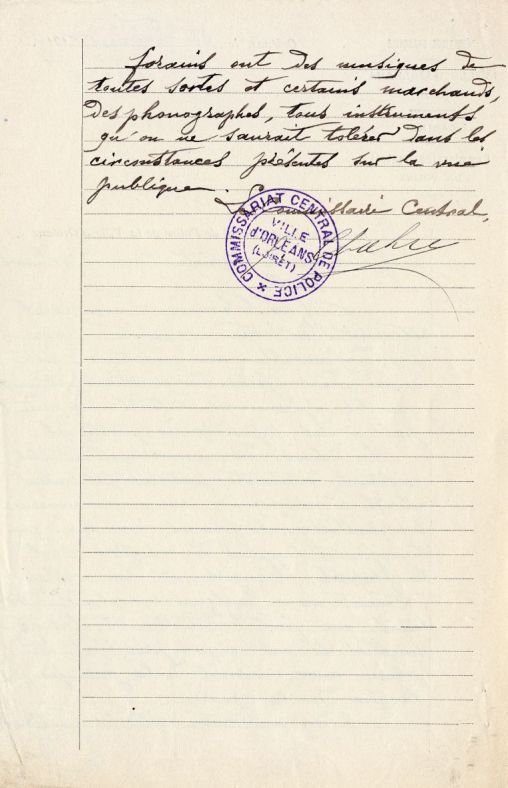 forains ont des musiques de
toutes sortes et certains marchands,
des phonographes, tous instruments
qu'on ne saurait tolérer dans les
circonstances présentes sur la voie
publique.
Le Commissaire Central,
COMMISSARIAT CENTRAL DE POLICE
VILLE
d'ORLÉANS
(LOIRET)